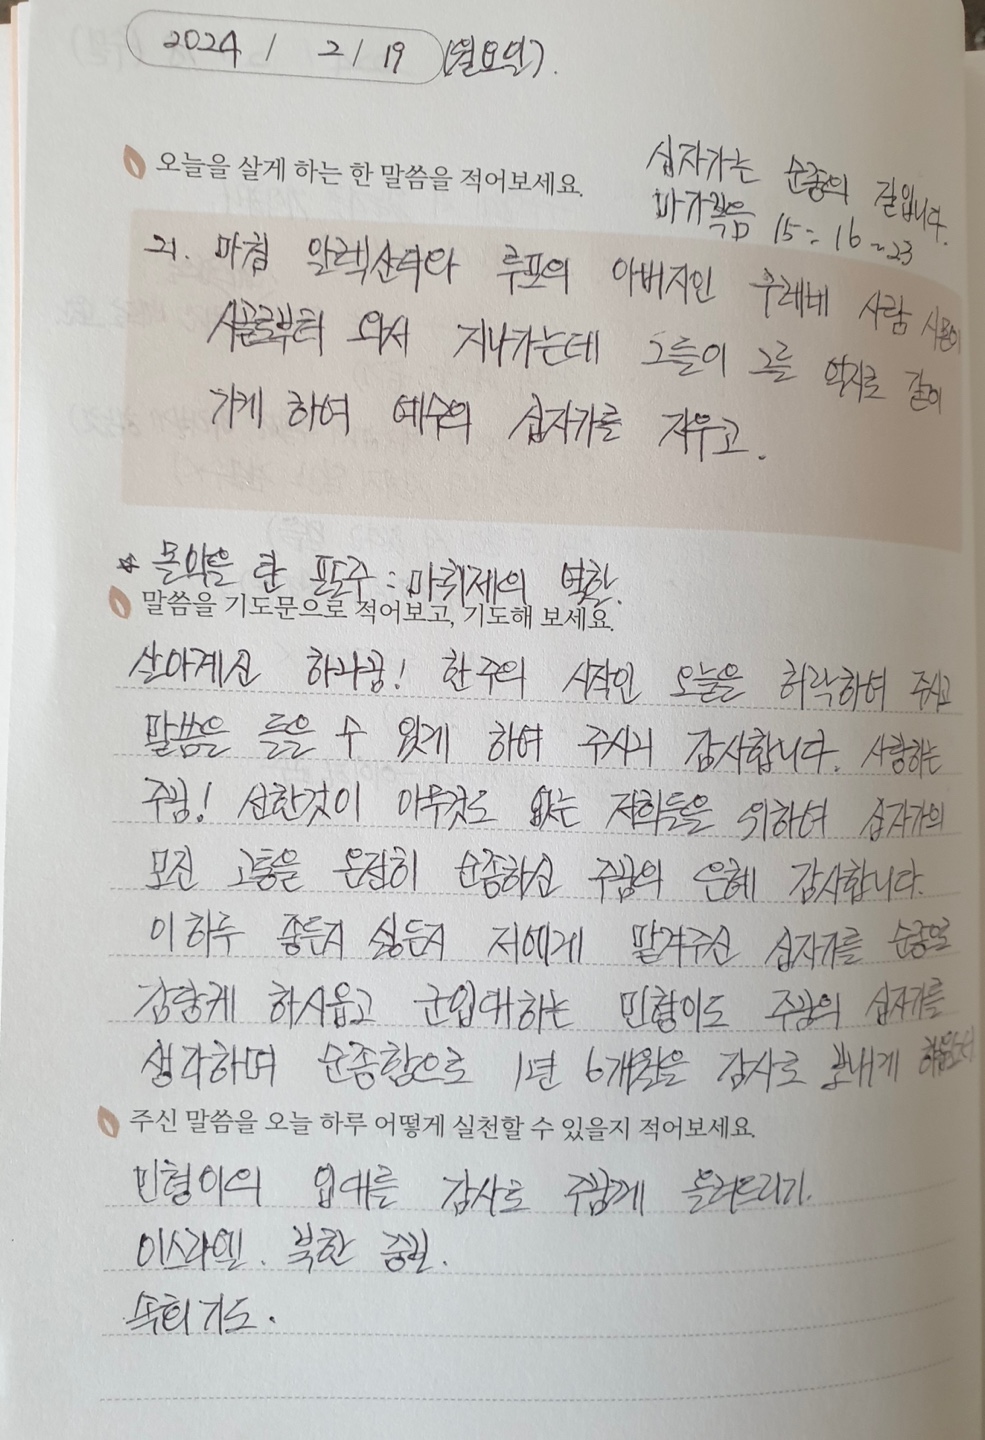 2024 / 2 / 19 (월요일).
오늘을 살게 하는 한 말씀을 적어보세요.
십자가는 순종의 길입니다.
마가복음 15:16~23
21. 마침 알렉산더와 루포의 아버지인 구레네 사람 시몬이
시골로부터 와서 지나가는데 그들이 그를 억지로 같이
가게 하여 예수의 십자가를 지우고.
* 몰약을 탄 포도주 : 마취제의 역할.
말씀을 기도문으로 적어보고, 기도해 보세요.
살아계신 하나님! 한 주의 시작인 오늘을 허락하여 주시고
말씀을 들을 수 있게 하여 주시니 감사합니다. 사랑하는
주님! 선한것이 아무것도 없는 저희들을 위하여 십자가의
모진 고통을 온전히 순종하신 주님의 은혜 감사합니다.
이 하루 좋든지 싫든지 저에게 맡겨주신 십자가를
감당케 하시옵고 군입대하는 민형이도 주님의 십자가를
생각하며 순종함으로 1년 6개월을 감사로 보내게 하옵소서
주신 말씀을 오늘 하루 어떻게 실천할 수 있을지 적어보세요.
민형이의 입대를 감사로 주님께 올려드리기.
이스라엘. 북한 중보.
속회기도.